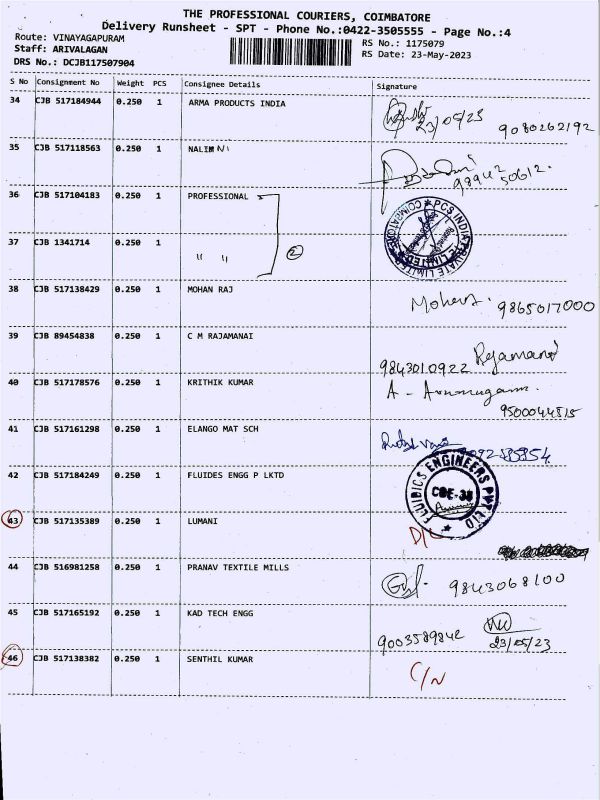 THE PROFESSIONAL COURIERS, COIMBATORE
Delivery Runsheet - SPT - Phone No.:0422-3505555 - Page No.:4
Route: VINAYAGAPURAM
RS No.: 1175079
Staff: ARIVALAGAN
RS Date: 23-May-2023
DRS No.: DCJB117507904
S No Consignment No Weight PCS Consignee Details Signature
34 CJB 517184944 0.250 1 ARMA PRODUCTS INDIA
23/05/23 9080262192
35 CJB 517118563 0.250 1 NALINNI
98942 50612.
36 CJB 517104183 0.250 1 PROFESSIONAL
PCS INDIA PRIVATE LIMITED COIMBATORE
37 CJB 1341714 0.250 1 " " 2
38 CJB 517138429 0.250 1 MOHAN RAJ
9865017000
39 CJB 89454838 0.250 1 C M RAJAMANAI
9843010922 Rajamani
40 CJB 517178576 0.250 1 KRITHIK KUMAR
A - Arumugam.
9500044815
41 CJB 517161298 0.250 1 ELANGO MAT SCH
42 CJB 517184249 0.250 1 FLUIDES ENGG P LKTD
FLUIDICS ENGINEERS PVT LTD
CBE-35
43 CJB 517135389 0.250 1 LUMANI
D/L
44 CJB 516981258 0.250 1 PRANAV TEXTILE MILLS
9843068100
45 CJB 517165192 0.250 1 KAD TECH ENGG
9003589842 23/05/23
46 CJB 517138382 0.250 1 SENTHIL KUMAR
C/N